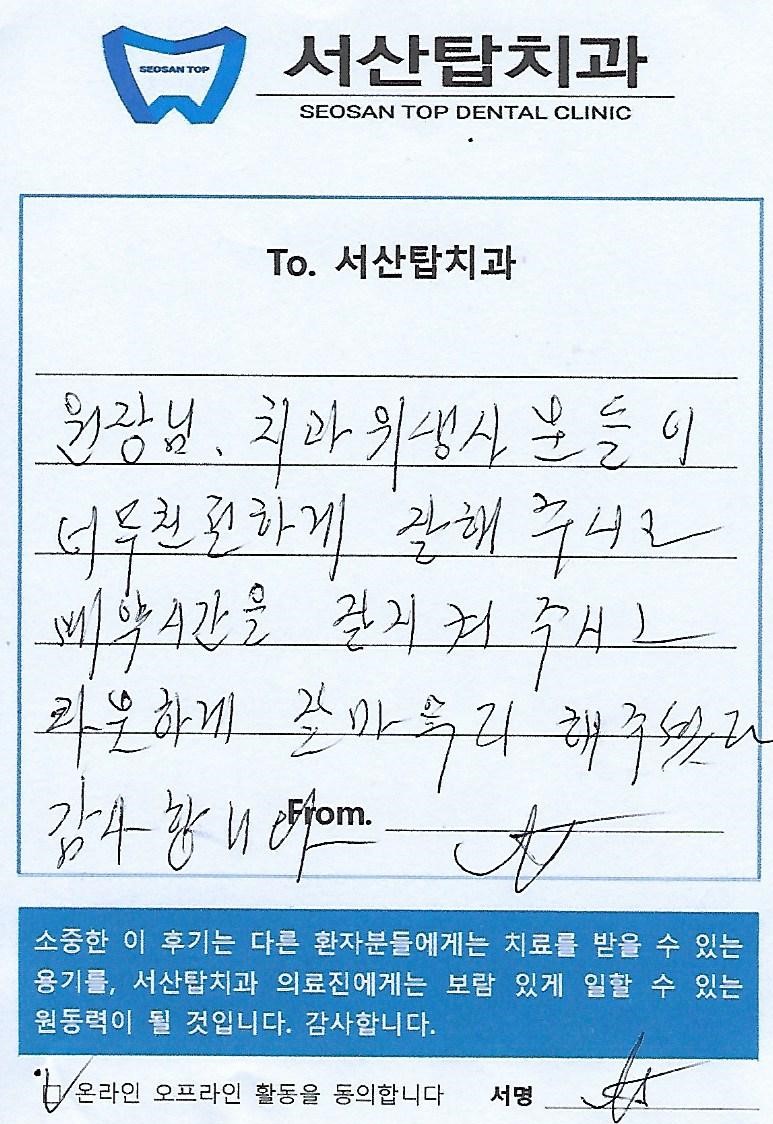 SEOSAN TOP
서산탑치과
SEOSAN TOP DENTAL CLINIC
To. 서산탑치과
원장님. 치과위생사 분들이
너무친절하게 잘해 주시고
예약시간을 잘지켜 주시고
하게 잘마무리 해주셨고
감사합니다
From.
소중한 이 후기는 다른 환자분들에게는 치료를 받을 수 있는
용기를, 서산탑치과 의료진에게는 보람 있게 일할 수 있는
원동력이 될 것입니다. 감사합니다.
온라인 오프라인 활동을 동의합니다 서명